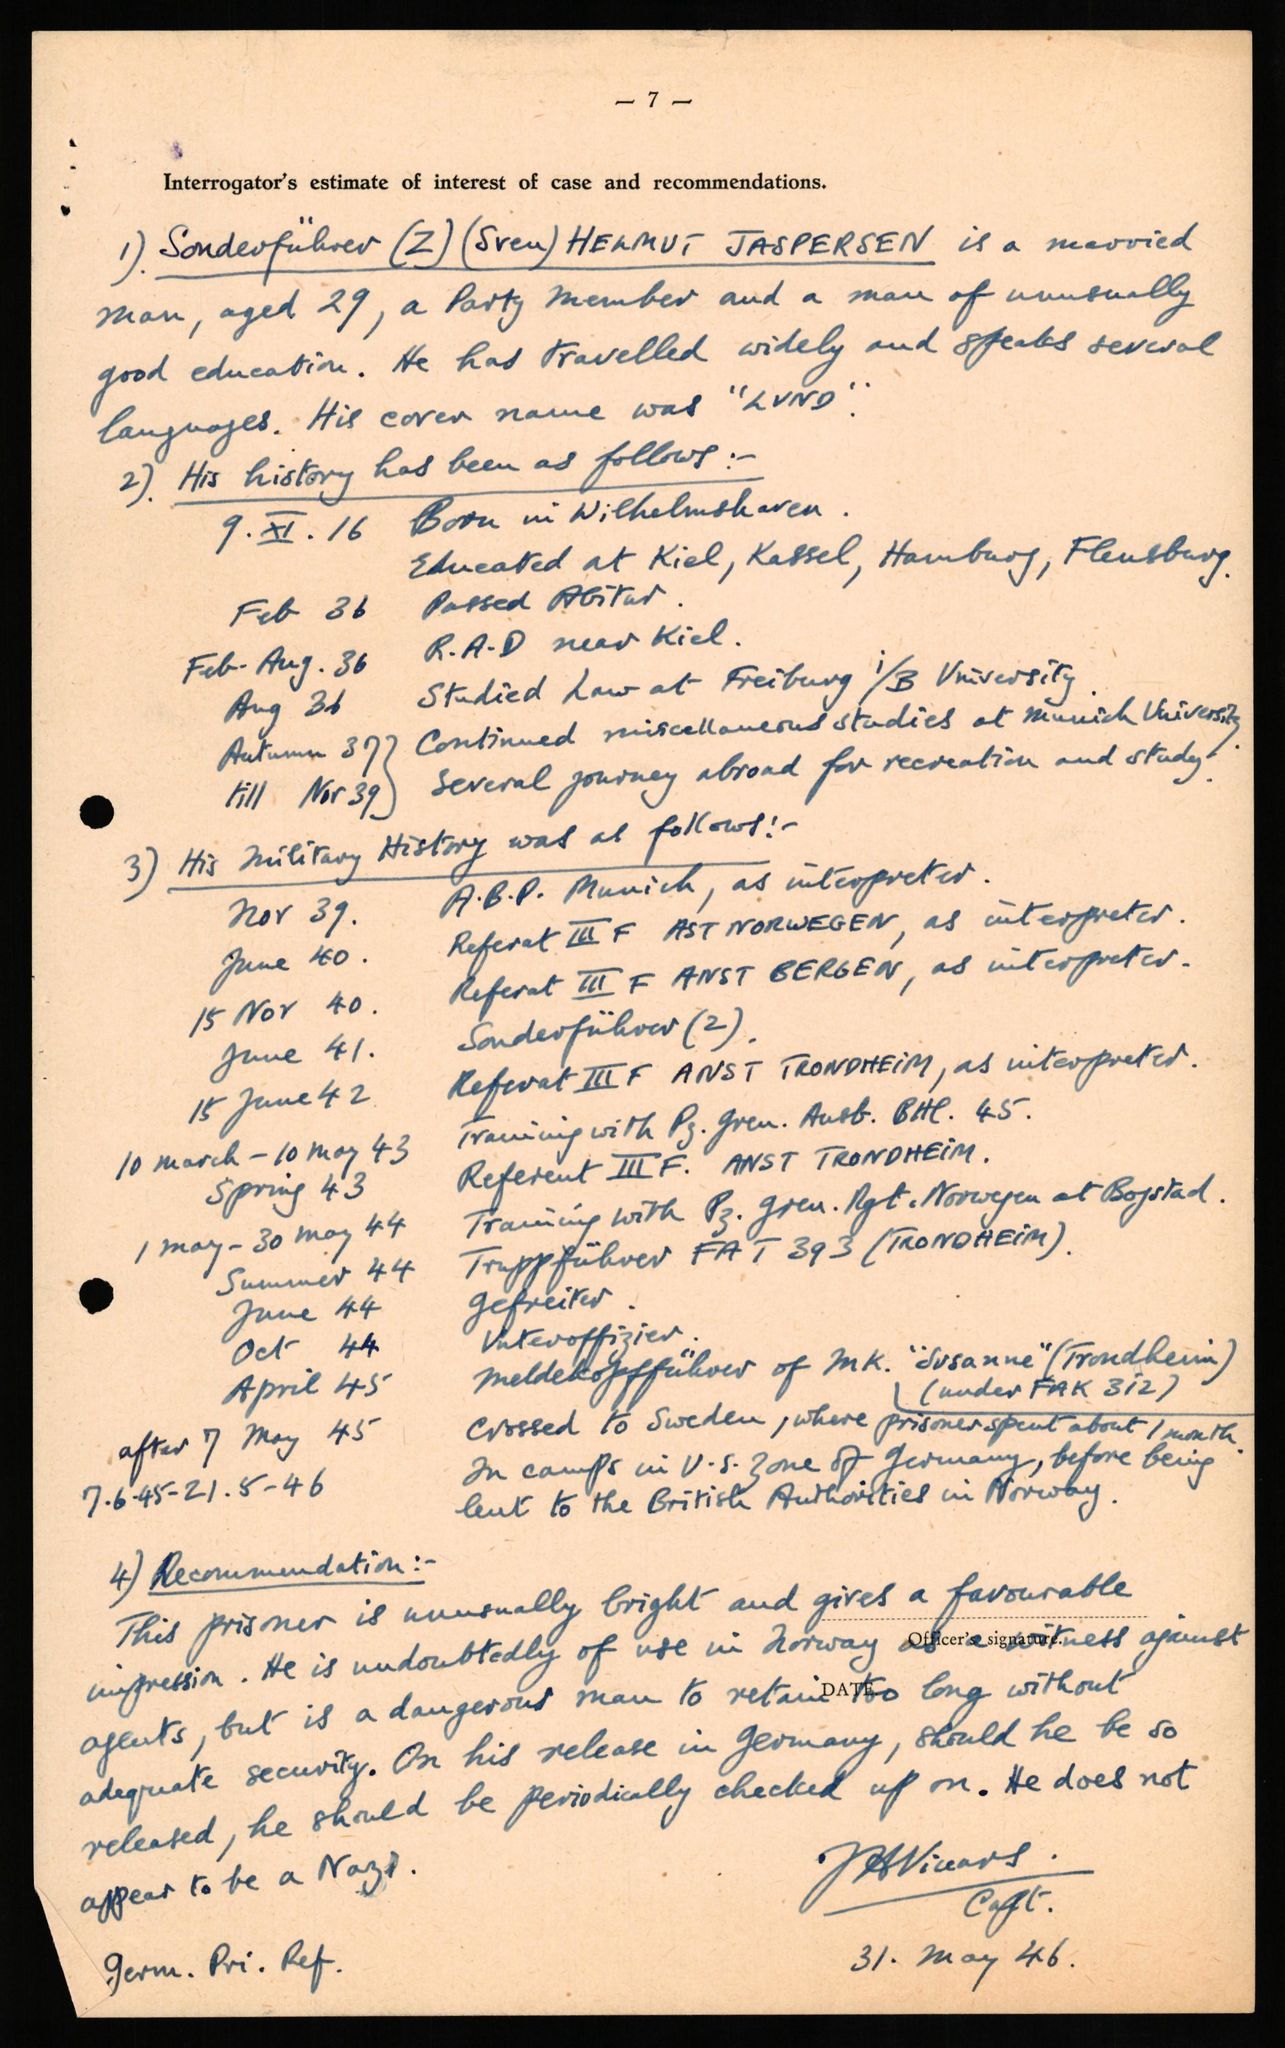 — 7 —
Interrogator's estimate of interest of case and recommendations.
1). Sonderführer (Z) (Sven) HELMUT JASPERSEN is a married
man, aged 29, a Party Member and a man of unusually
good education. He has travelled widely and speaks several
languages. His cover name was "LUND".
2). His history has been as follows:-
9. XI. 16 Born in Wilhelmshaven.
Educated at Kiel, Kassel, Hamburg, Flensburg.
Feb 36 Passed Abitur.
Feb-Aug. 36 R.A.D near Kiel.
Aug 36 Studied Law at Freiburg i/B University.
Autumn 37} Continued miscellaneous studies at Munich University.
till Nov 39} Several journey abroad for recreation and study.
3) His Military History was as follows:-
Nov 39. A.B.P. Munich, as interpreter.
June 40. Referat III F AST NORWEGEN, as interpreter.
15 Nov 40. Referat III F ANST BERGEN, as interpreter.
June 41. Sonderführer (Z).
15 June 42 Referat III F ANST TRONDHEIM, as interpreter.
10 March - 10 May 43 Training with Pz. Gren. Ausb. Btl. 45.
Spring 43 Referent III F. ANST TRONDHEIM.
1 May - 30 May 44 Training with Pz. Gren. Rgt. Norwegen at Bogstad.
Summer 44 Truppführer FAT 393 (TRONDHEIM).
June 44 Gefreiter.
Oct 44 Unteroffizier.
April 45 Meldekopfführer of MK. "Susanne" (Trondheim)
(under FAK 312)
after 7 May 45 Crossed to Sweden, where prisoner spent about 1 month.
7.6.45-21.5-46 In camps in U.S. Zone of Germany, before being
lent to the British Authorities in Norway.
4) Recommendation:-
This prisoner is unusually bright and gives a favourable
impression. He is undoubtedly of use in Norway as a witness against
Officer's signature.
agents, but is a dangerous man to retain too long without
DATE
adequate security. On his release in Germany, should he be so
released, he should be periodically checked up on. He does not
appear to be a Nazi.
JHVicars.
Capt.
31. May 46.
Germ. Pri. Ref.